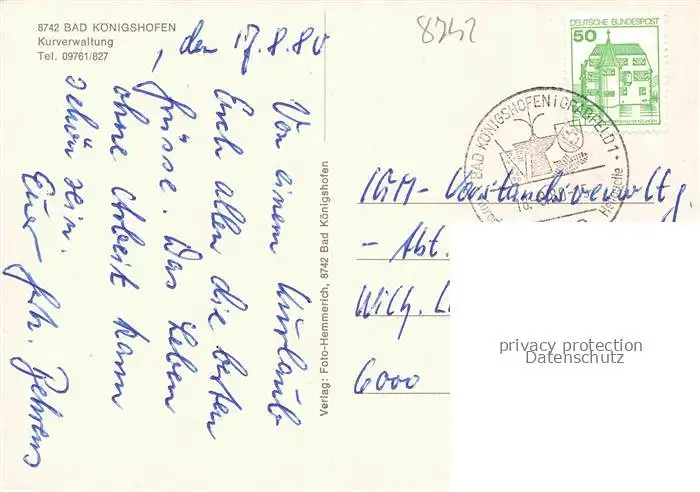 8742 BAD KÖNIGSHOFEN
Kurverwaltung
Tel. 09761/827
, den 17.8.80
Von einem Kurlaub
Euch allen die besten
Grüsse. Das Leben
ohne Arbeit kann
schön sein.
Euer Frh. Behrens
Verlag: Foto-Hemmerich, 8742 Bad Königshofen
8742
DEUTSCHE BUNDESPOST
50
BAD KÖNIGSHOFEN I GRABFELD 1
Heilquelle
IGM-Vorstandsverwaltg.
- Abt.
Wilh. L
6000
privacy protection
Datenschutz